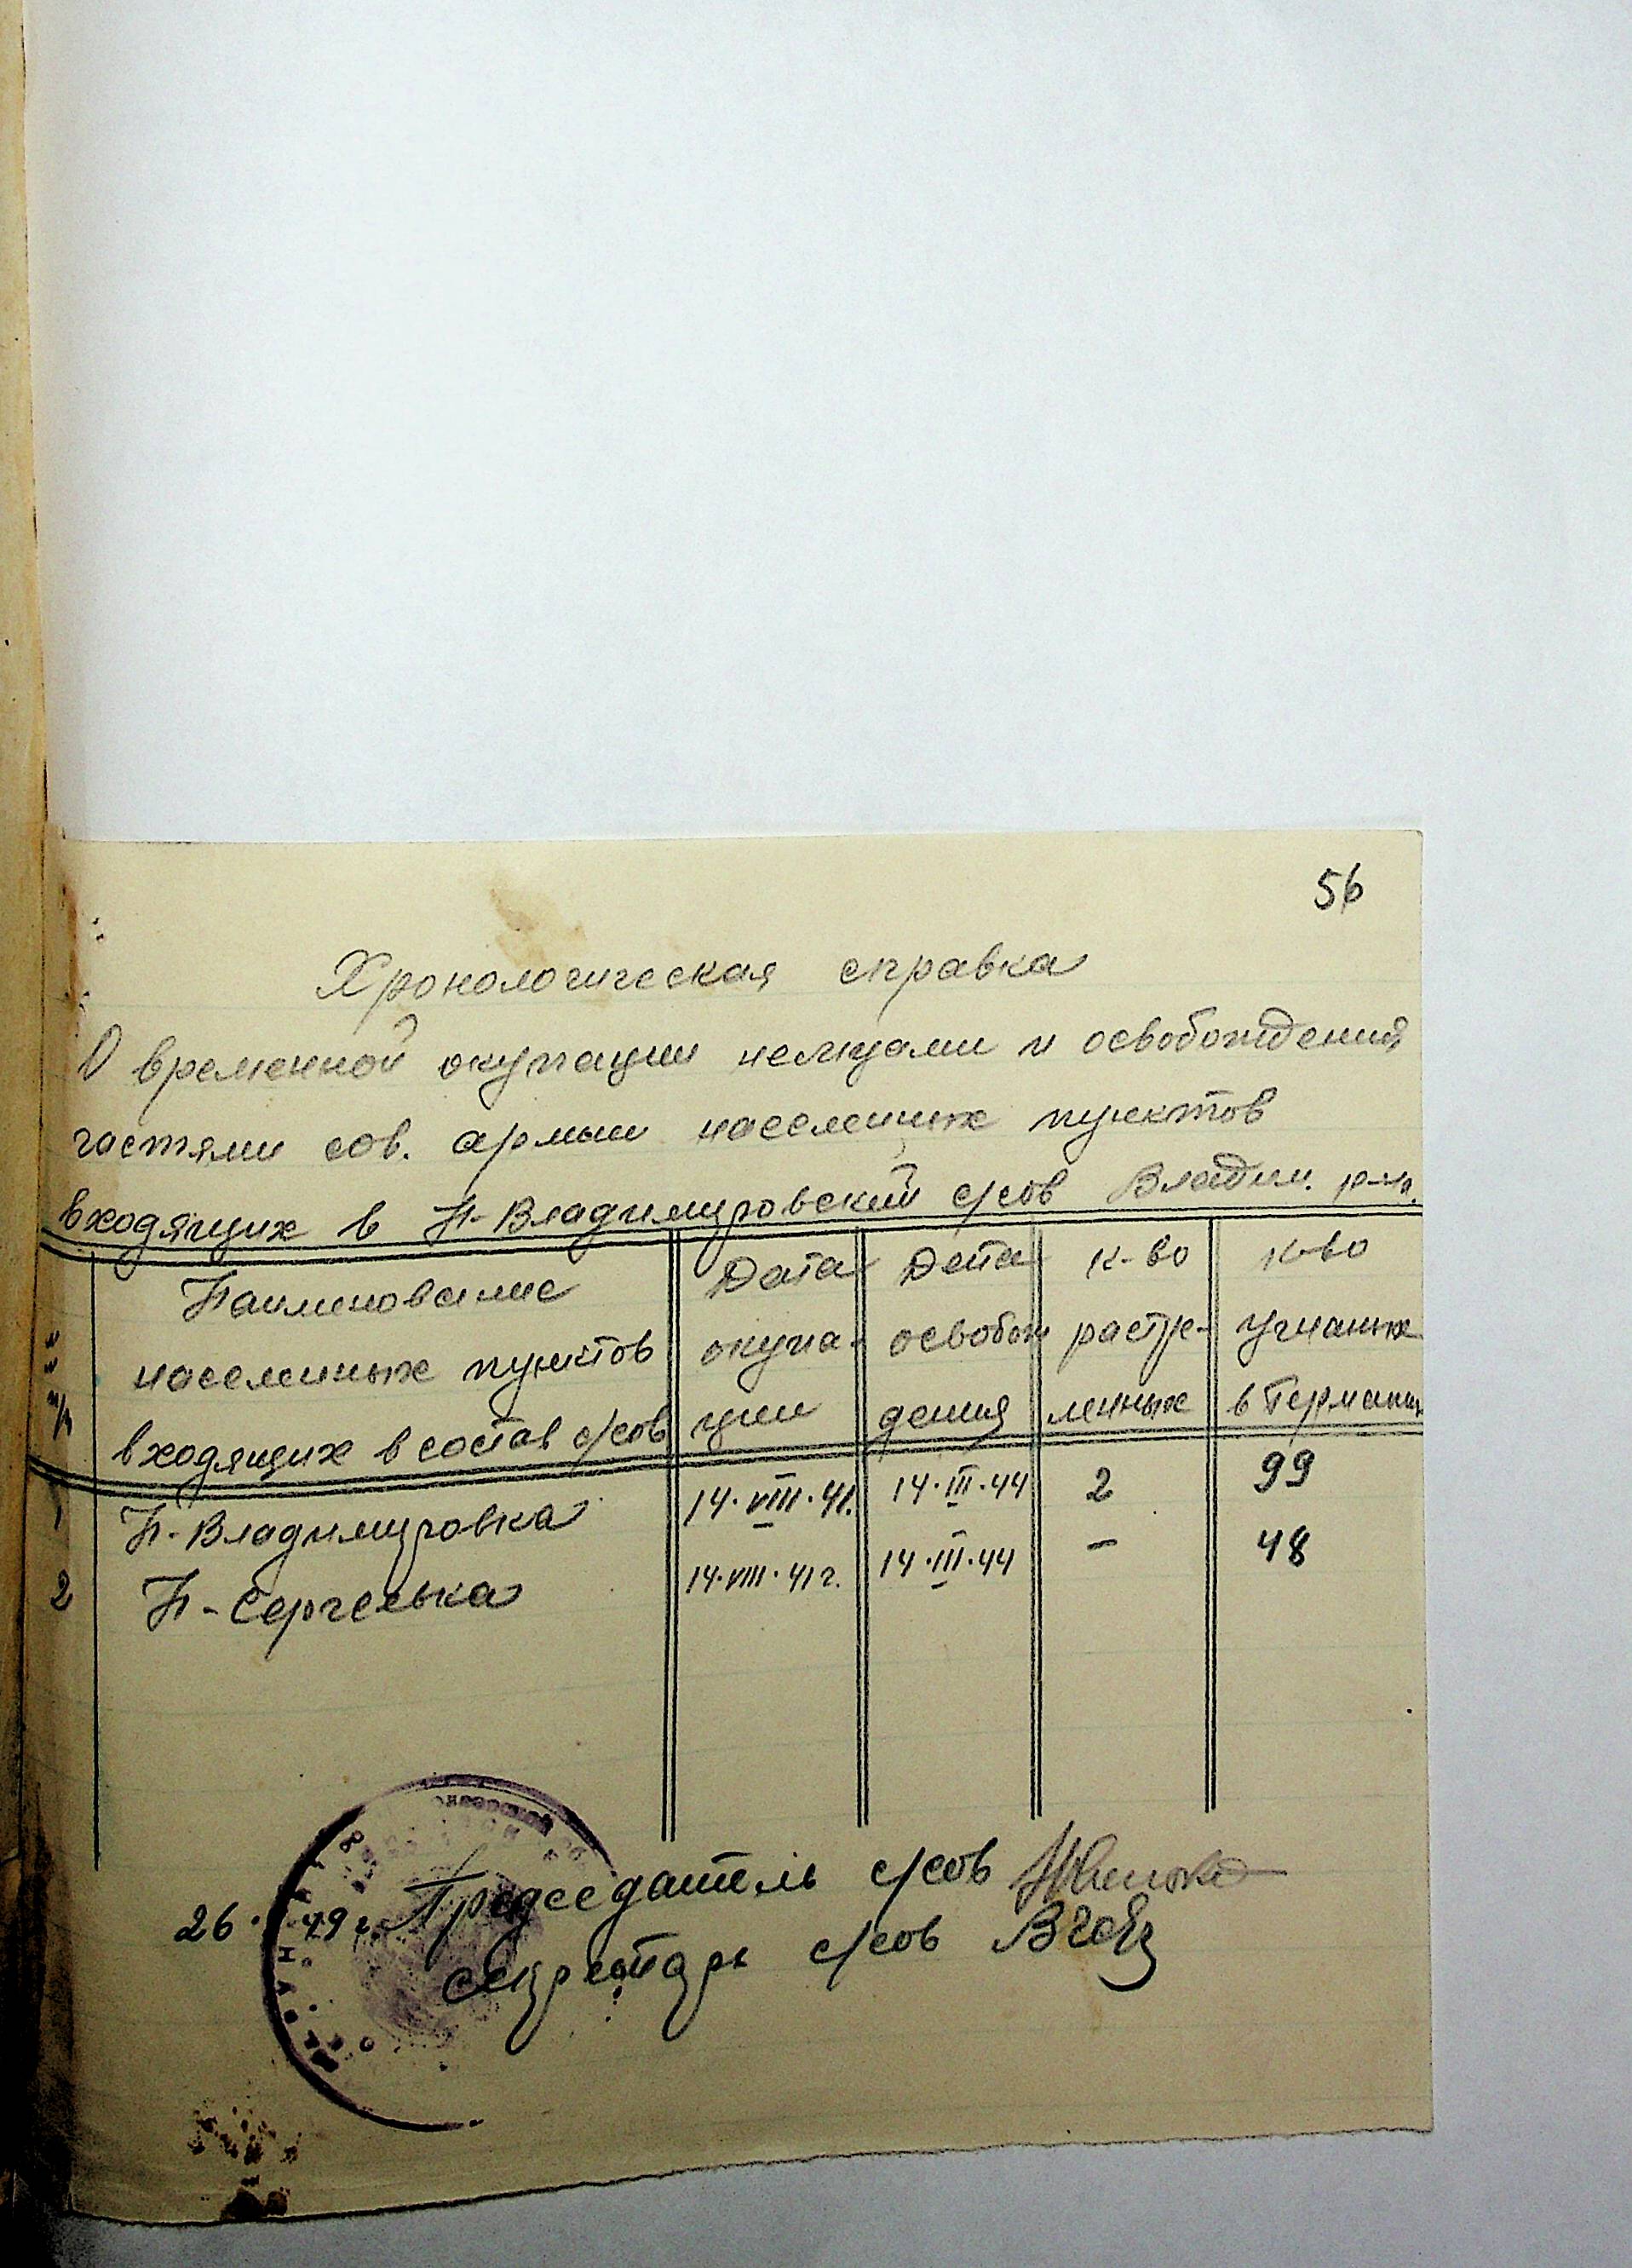 56
Хронологическая справка
О временной окупации немцами и освобождения
частями сов. армии населенных пунктов
входящих в Н-Владимировский с/сов Владим. р-на.
№№ п/п
Наименование населенных пунктов входящих в состав с/сов
Дата окупа-ции
Дата освобож дения
к-во растре-лянных
к-во угнаных в Германию
1 Н-Владимировка 14.VIII.41. 14.III.44 2 99
2 Н-Сергеевка 14.VIII.41 г. 14.III.44 — 48
Председатель с/сов
26. 49 г.
секретарь с/сов